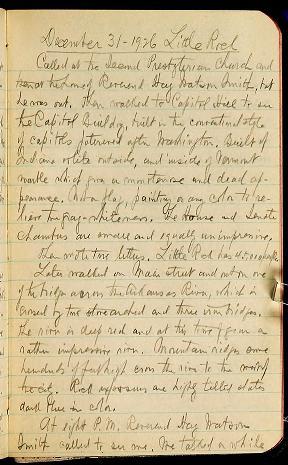 December 31-1926 Little Rock
Called at the Second Presbyterian Church and
then at the home of Reverend Hay Watson Smith, but
he was out. Then walked to Capitol Hill to see
the Capitol Building, built in the conventional style
of capitols patterned after Washington. Built of
Indiana oolite outside, and inside of Vermont
marble which gives a monotonous and dead ap-
pearance. Not a flag, painting or any color to re-
lieve the gray-whiteness. The House and Senate
chambers are small and equally unimpressive.
Then wrote two letters. Little Rock has 45,000 people.
Later walked on Main street and out on one
of the bridges across the Arkansas River, which is
crossed by two stone arched and three iron bridges.
The river is deep red and at this time of year a
rather impressive river. Mountain ridges some
hundreds of feet high cross the river to the west of
the city. Rock exposures are highly tilted slates
dark blue in color.
At eight P.M. Reverend Hay Watson
Smith called to see me. We talked a while